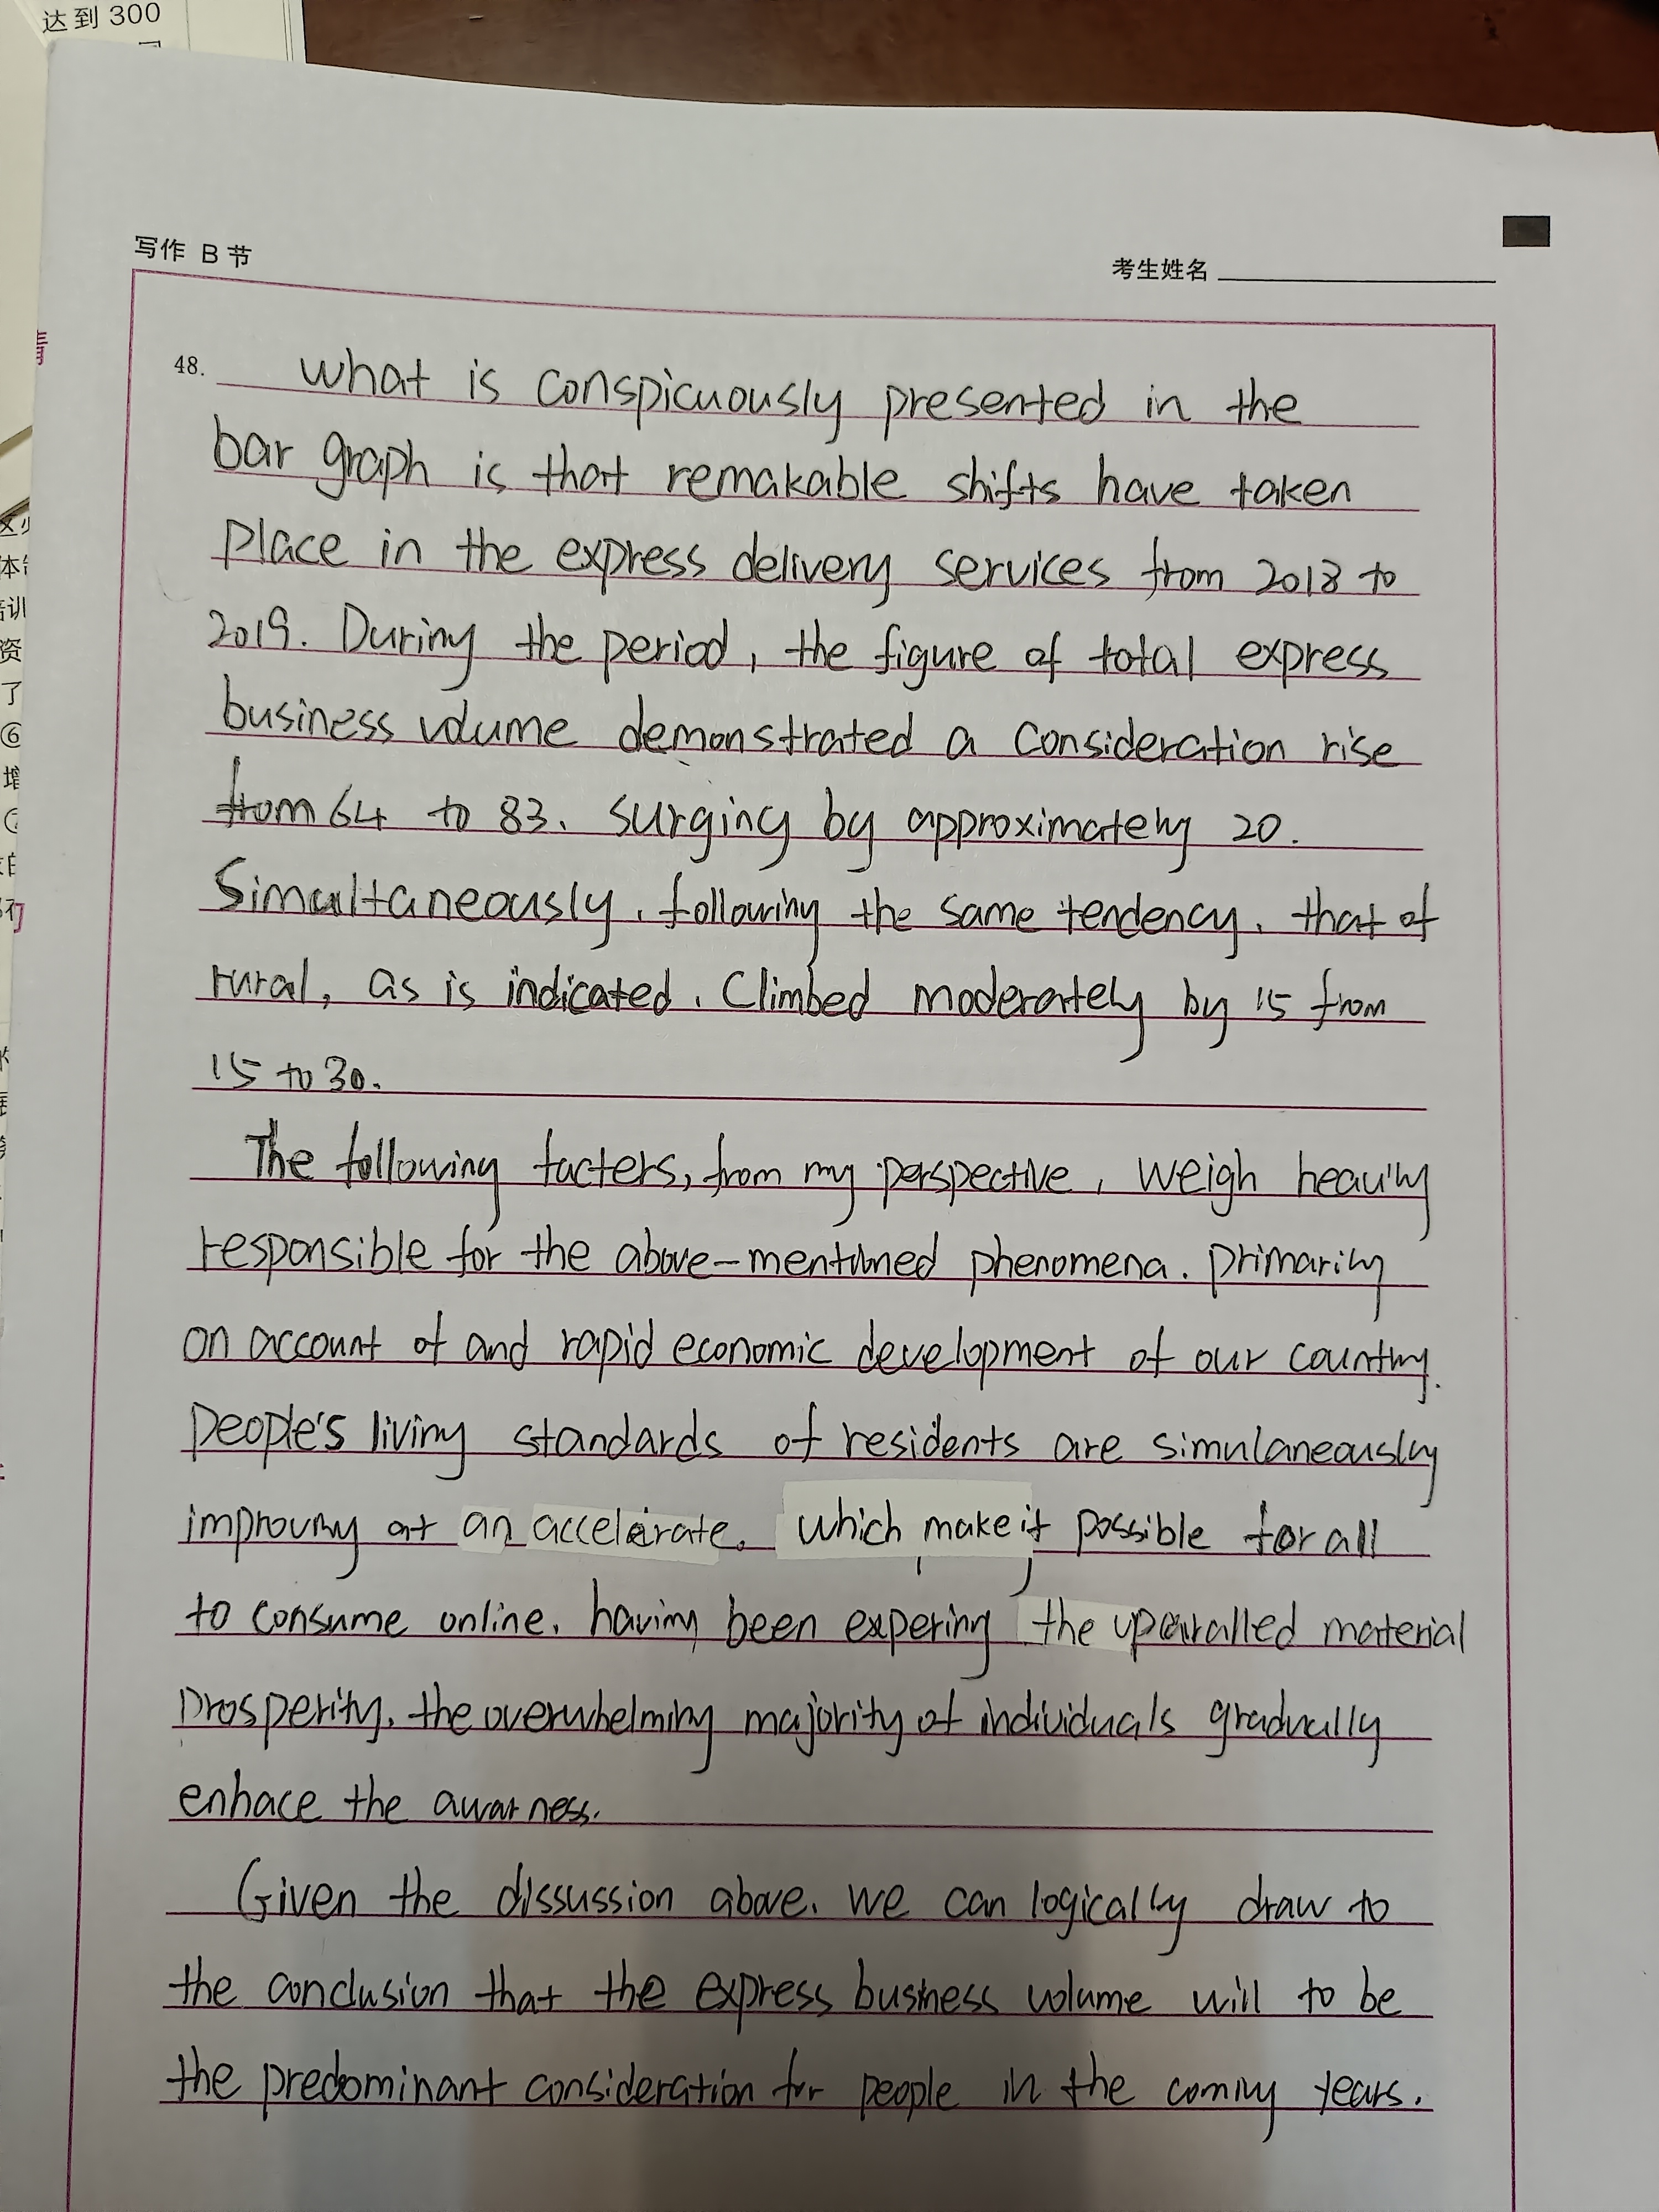 达到 300
写作 B 节
考生姓名
48. what is conspicuously presented in the
bar graph is that remakable shifts have taken
place in the express delivery services from 2018 to
2019. During the period, the figure of total express
business volume demonstrated a consideration rise
from 64 to 83. surging by approximately 20.
Simultaneously, following the same tendency, that of
rural, as is indicated. Climbed moderately by 15 from
15 to 30.
The following facters, from my perspective, weigh heavily
responsible for the above-mentioned phenomena. primarily
on account of and rapid economic development of our country.
people's living standards of residents are simulaneously
improving at an accelerate. which make it possible for all
to consume online. having been expering the uparalled material
prosperity. the overwhelming majority of individuals gradually
enhace the awarness.
Given the dissussion above. we can logically draw to
the conclusion that the express business volume will to be
the predominant consideration for people in the coming years.